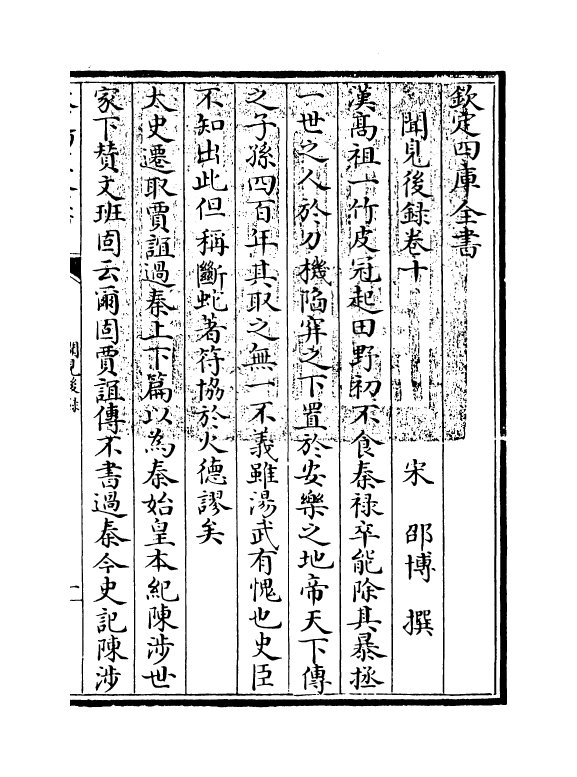 欽定四庫全書
聞見後録卷十
宋 邵博 撰
漢髙祖一竹皮冠起田野初不食秦禄卒能除其暴拯
一世之人於刀機陷穽之下置於安樂之地帝天下傳
之子孫四百年其取之無一不義雖湯武有愧也史臣
不知出此但稱斷蛇著符協於火德謬矣
太史遷取賈誼過秦上下篇以為秦始皇本紀陳涉世
家下賛文班固云爾固賈誼傳不書過秦今史記陳涉
聞見後録